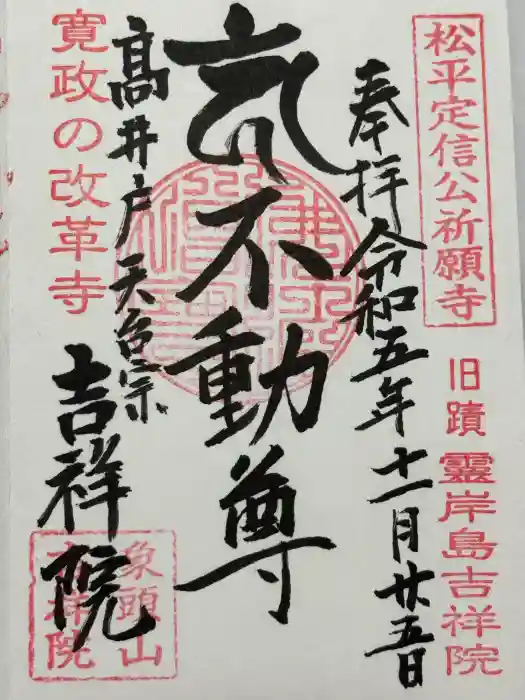 松平定信公祈願寺
旧蹟 靈岸島吉祥院
奉拝 令和五年十一月廿五日
不動尊
寛政の改革寺
髙井戸 天台宗
吉祥院
象頭山
吉祥院